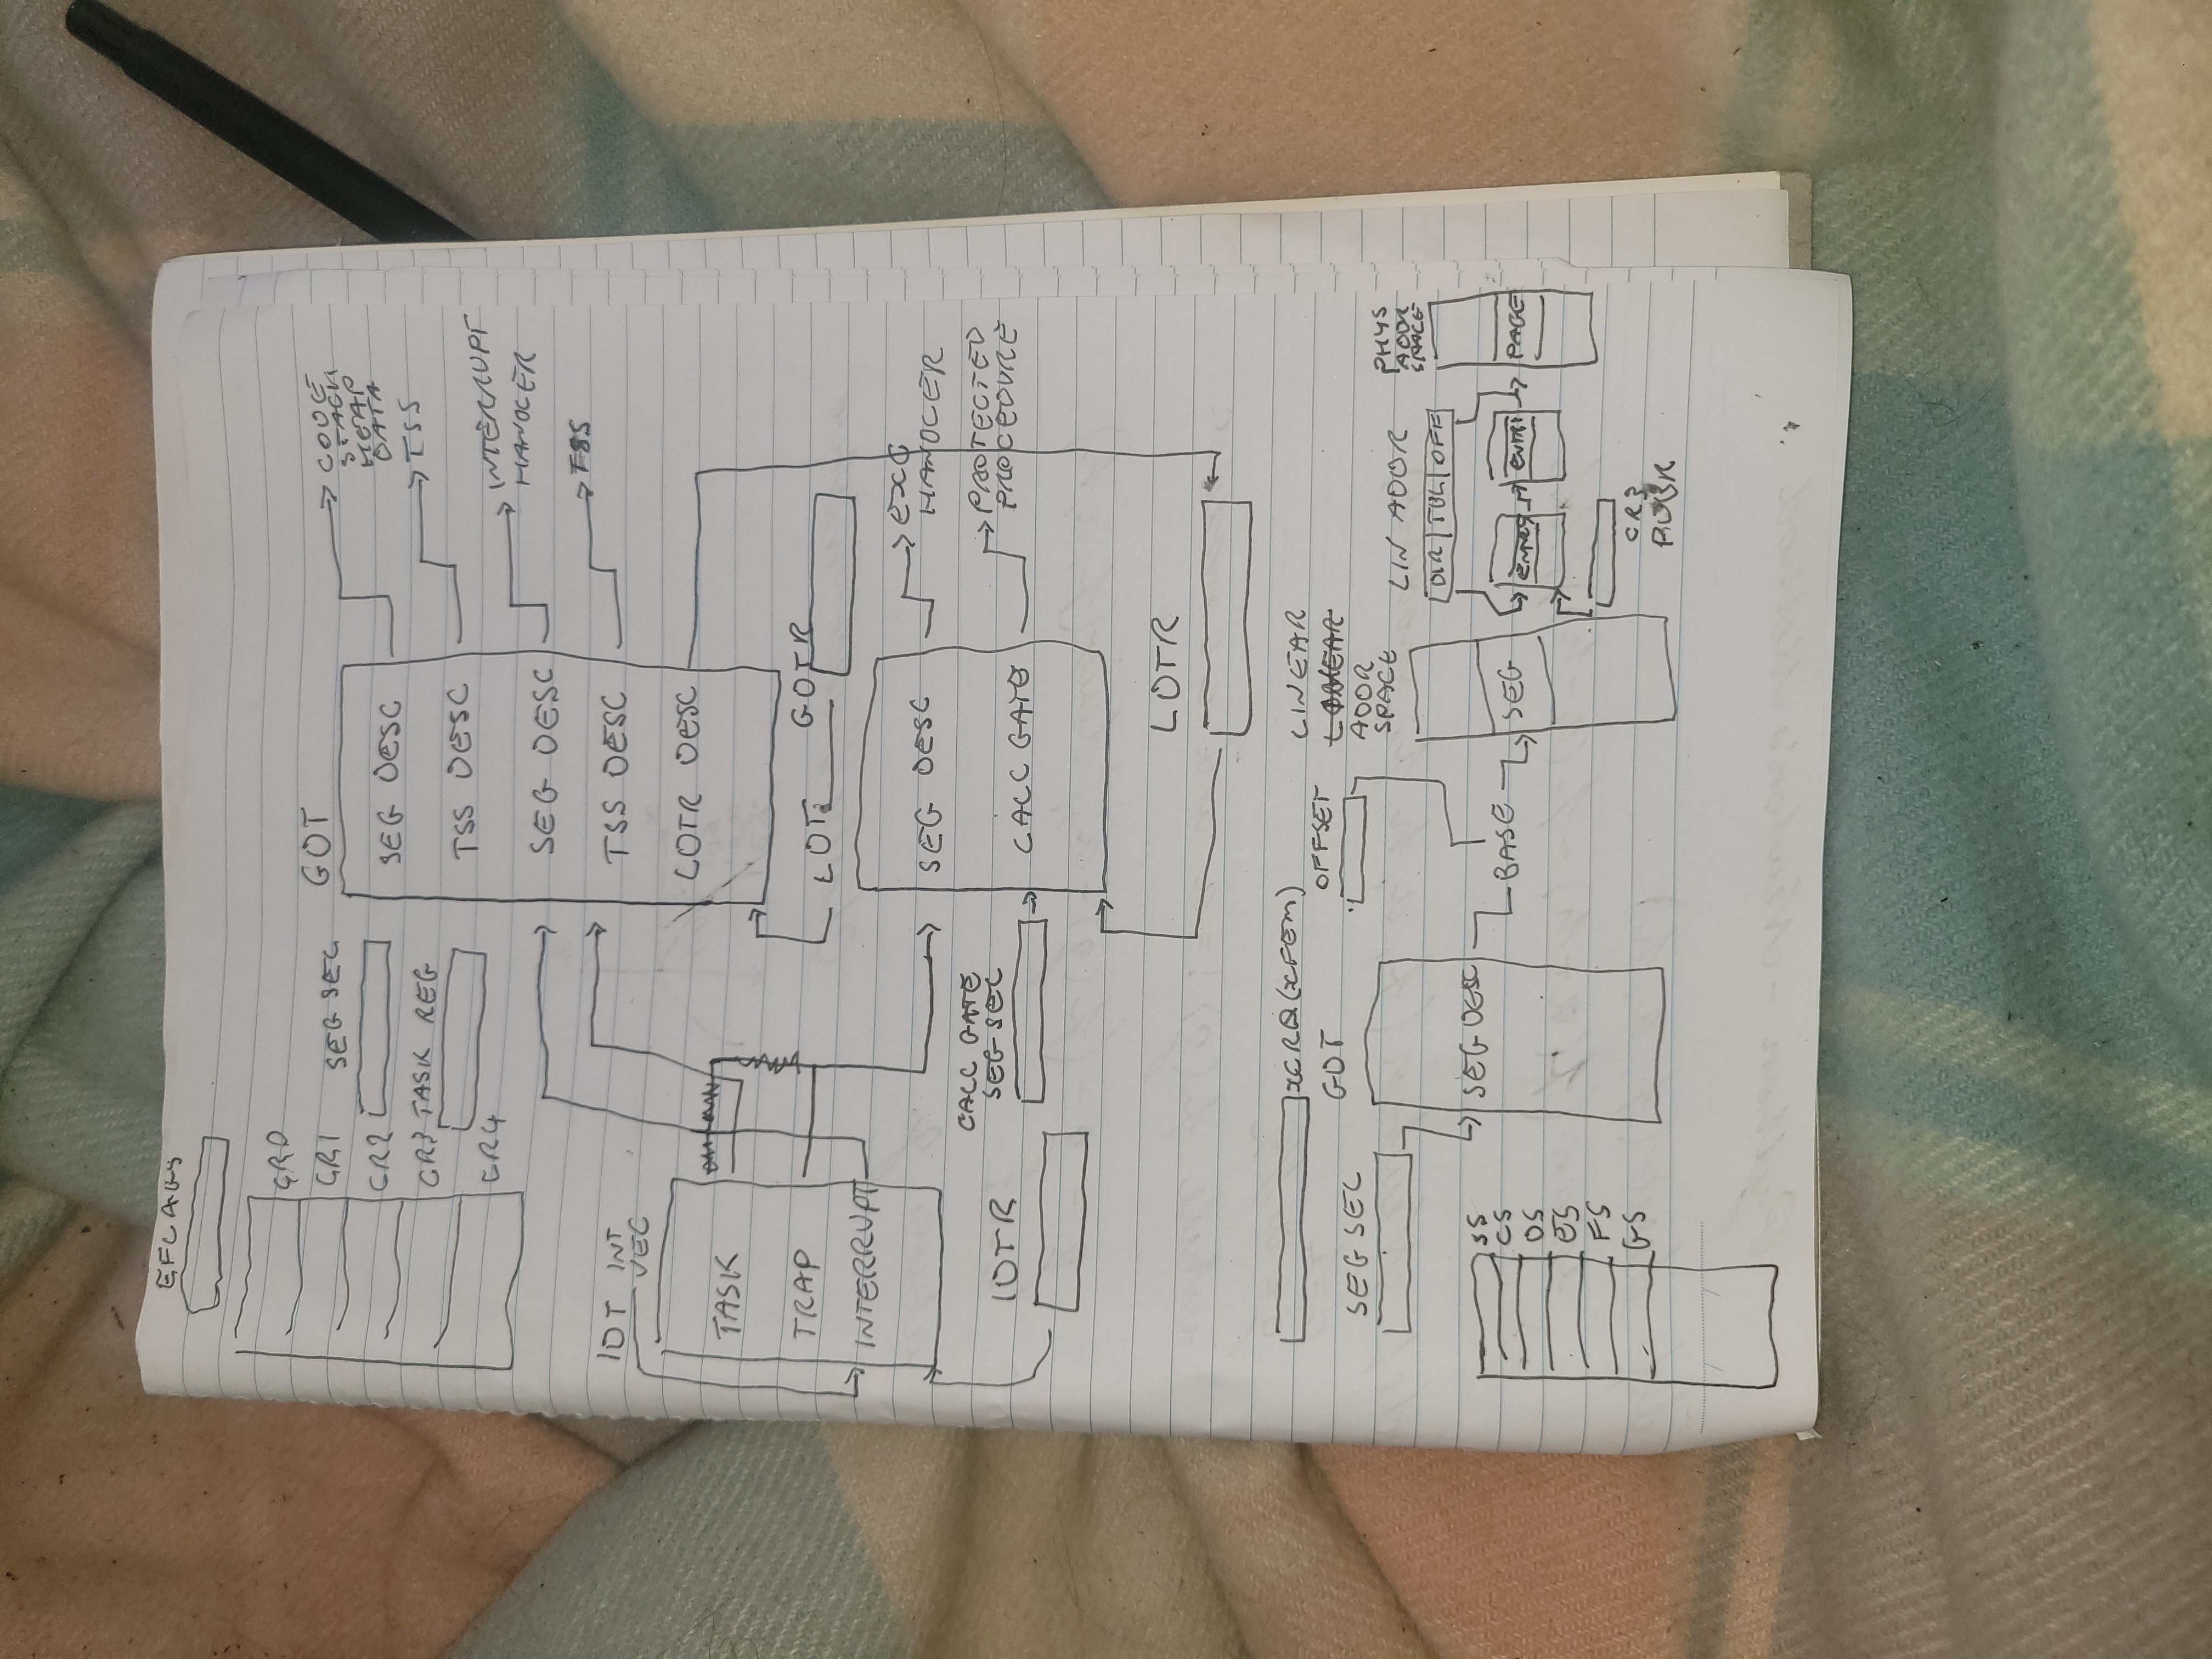 EFLAGS
CR0
CR1
CR2
CR3
CR4
SEG SEL
TASK REG
GDT
SEG DESC
TSS DESC
SEG DESC
TSS DESC
LDTR DESC
CODE
STACK
HEAP
DATA
TSS
INTERRUPT
HANDLER
TSS
IDT INT
VEC
TASK
TRAP
INTERRUPT
IDTR
LDT
GDTR
CALL GATE
SEG SEL
SEG DESC
CALL GATE
EXC
HANDLER
PROTECTED
PROCEDURE
LDTR
XCR0 (XFEM)
SEG SEL
GDT
SEG DESC
OFFSET
BASE
LINEAR
LINEAR
ADDR
SPACE
SEG
LIN ADDR
DIR TBL OFF
ENTRY
ENTRY
PHYS
ADDR
SPACE
PAGE
CR3
PDBR
SS
CS
DS
ES
FS
GS